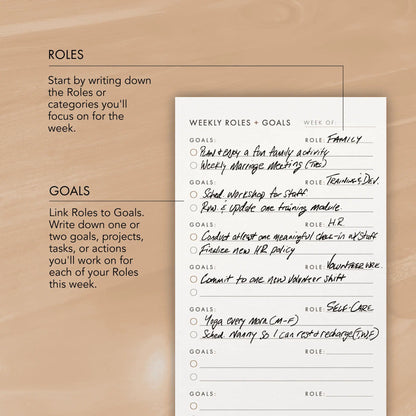 ROLES
Start by writing down
the Roles or
categories you'll
focus on for the
week.
GOALS
Link Roles to Goals.
Write down one or
two goals, projects,
tasks, or actions
you'll work on for
each of your Roles
this week.
WEEKLY ROLES + GOALS WEEK OF:
GOALS: ROLE: FAMILY
Plan & enjoy a fun family activity
Weekly Marriage Meeting (Tues)
GOALS: ROLE: TRAINING & DEV.
Sched. Workshop for Staff
Rvw & update one training module
GOALS: ROLE: H.R.
Conduct at least one meaningful check-in w/ Staff
Finalize new HR policy
GOALS: ROLE: VOLUNTEER
Commit to one new volunteer shift
GOALS: ROLE: SELF-CARE
Yoga every morn. (M-F)
Sched. Nanny so I can rest & recharge (T,W,F)
GOALS: ROLE:
GOALS: ROLE: